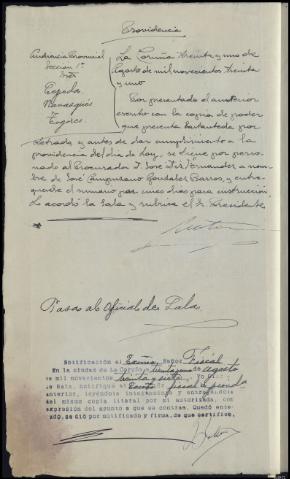 Providencia
Audiencia Provincial
Sección 1ª
Cepeda
La Coruña treinta y uno de
Agosto de mil novecientos treinta
y uno
Por presentado el anterior
escrito con la copia de poder
que presenta bastanteada por
Letrado y antes de dar cumplimiento a la
providencia del día de hoy, se tiene por perso
nado al Procurador D. José en no
mbre de José González Barros, y entre
guesele el sumario por cinco días para instrucción
Lo acordó la Sala y rubrica el Sr Presidente
Pasas al Oficial de Sala
Notificación al Señor Fiscal
En la ciudad de La Coruña a de agosto
de mil novecientos treinta y Yo Oficial
de Sala, notifiqué el
anterior, leyéndole íntegramente y entregándole
del mismo copia literal por mí autorizada, con
expresión del asunto a que se contrae. Quedó ente-
rado, se dió por notificado y firma, de que certifico,